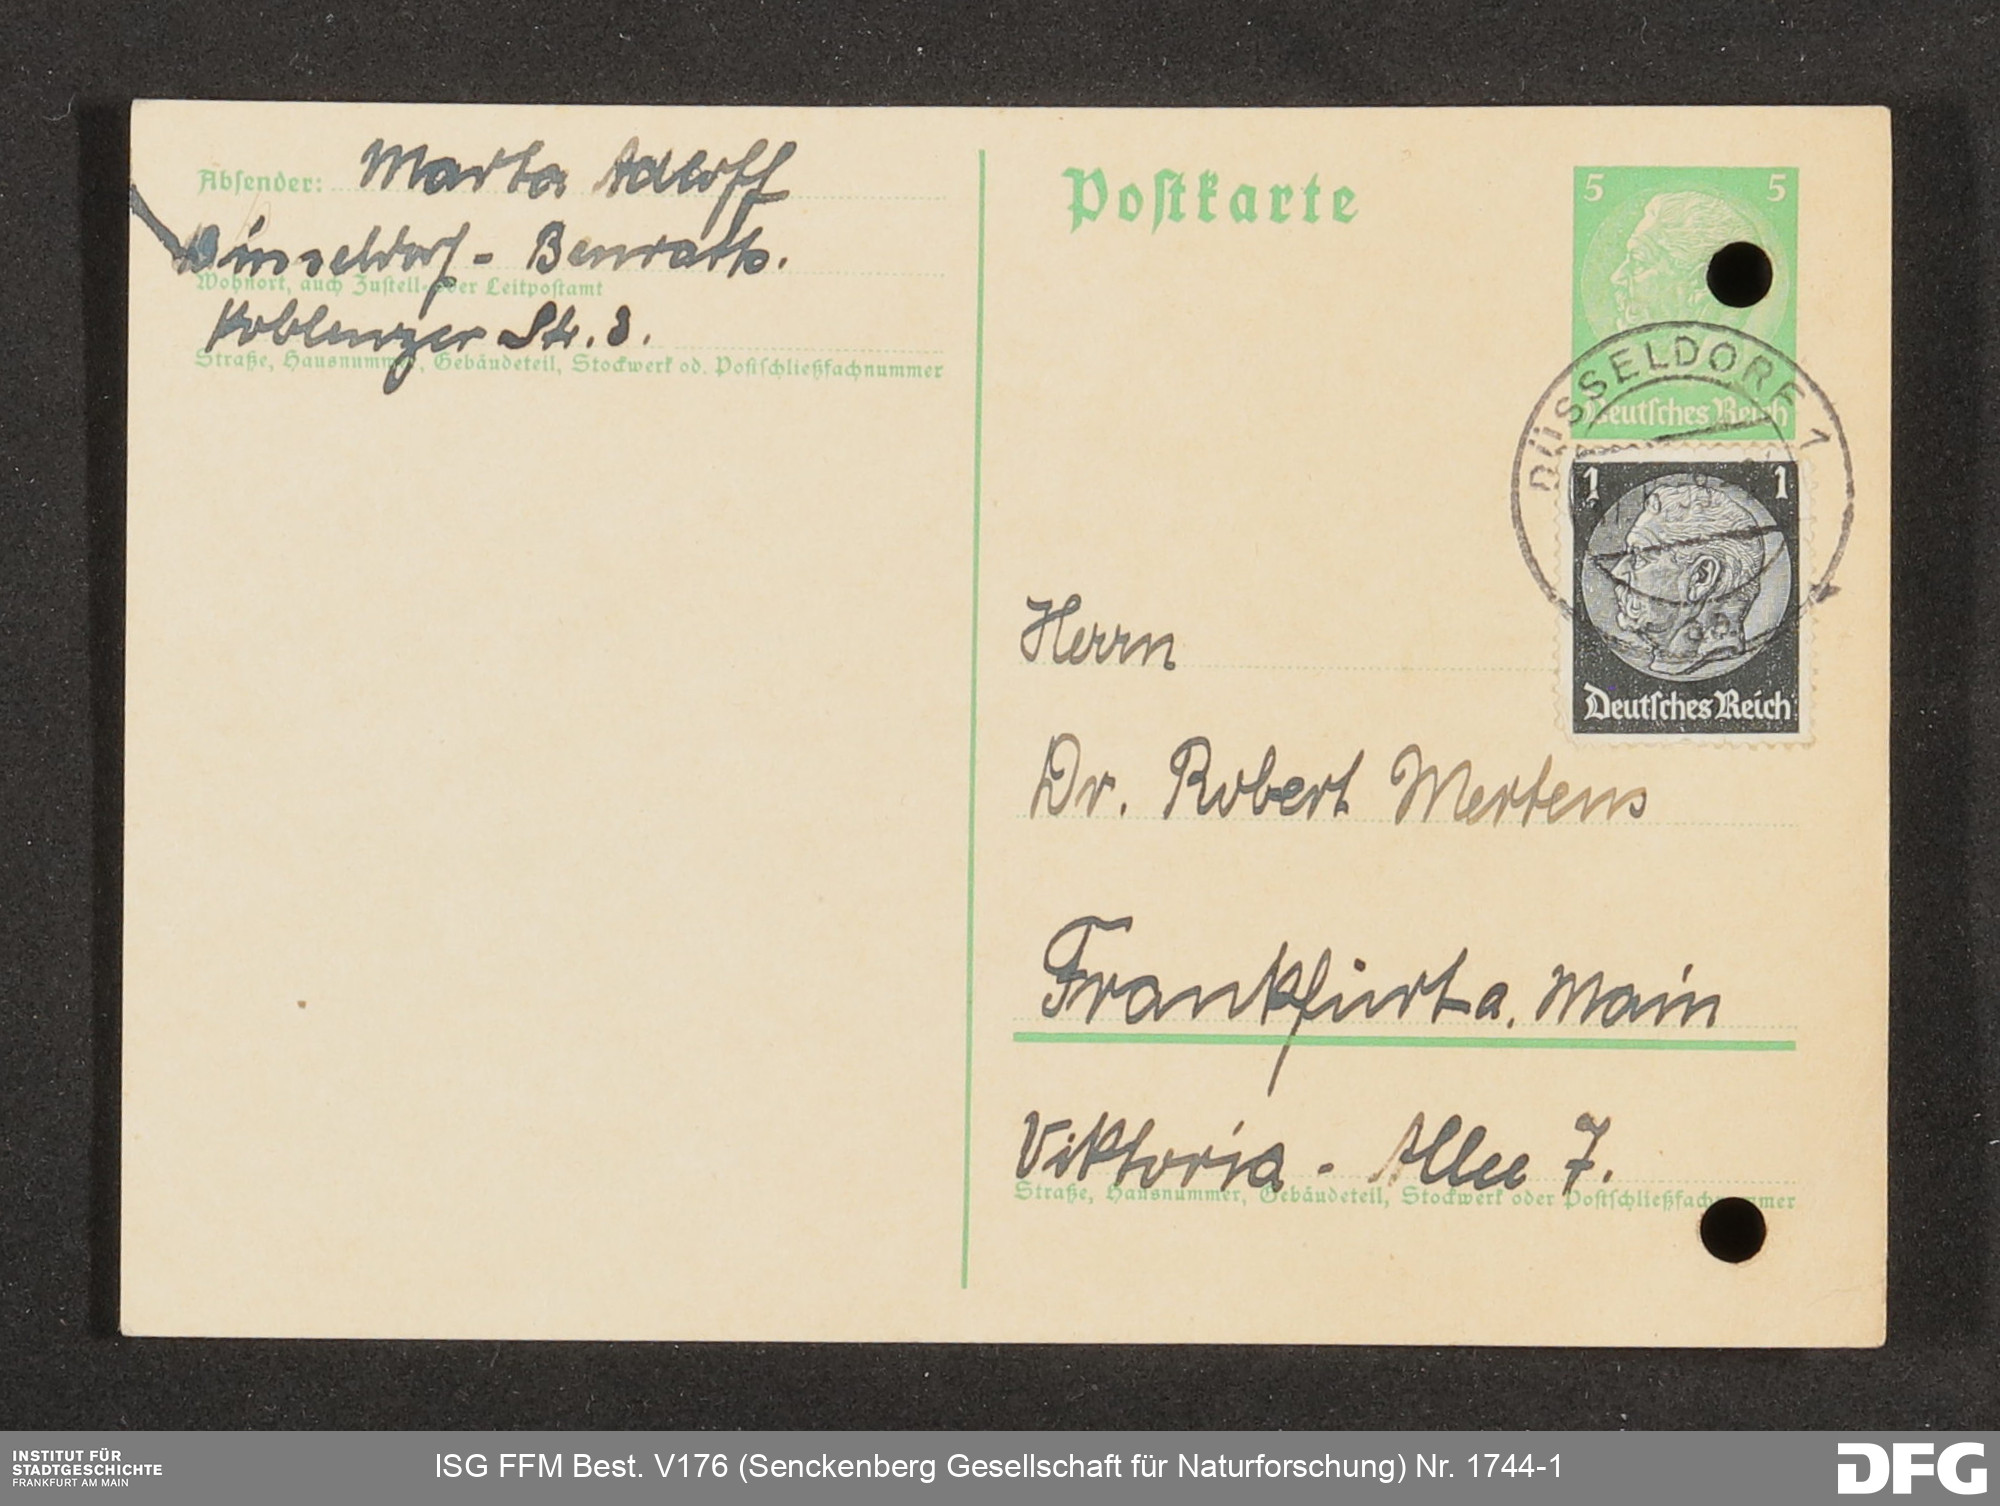 Absender: Marta Adloff
Düsseldorf - Benrath.
Wohnort, auch Zustell- oder Leitpostamt
Koblenzer Str. 3.
Straße, Hausnummer, Gebäudeteil, Stockwerk od. Postschließfachnummer
Postkarte
5 5
Deutsches Reich
DÜSSELDORF 1
1 1
Deutsches Reich
Herrn
Dr. Robert Mertens
Frankfurt a. Main
Viktoria - Allee 7.
Straße, Hausnummer, Gebäudeteil, Stockwerk oder Postschließfachnummer
INSTITUT FÜR
STADTGESCHICHTE
FRANKFURT AM MAIN
ISG FFM Best. V176 (Senckenberg Gesellschaft für Naturforschung) Nr. 1744-1
DFG